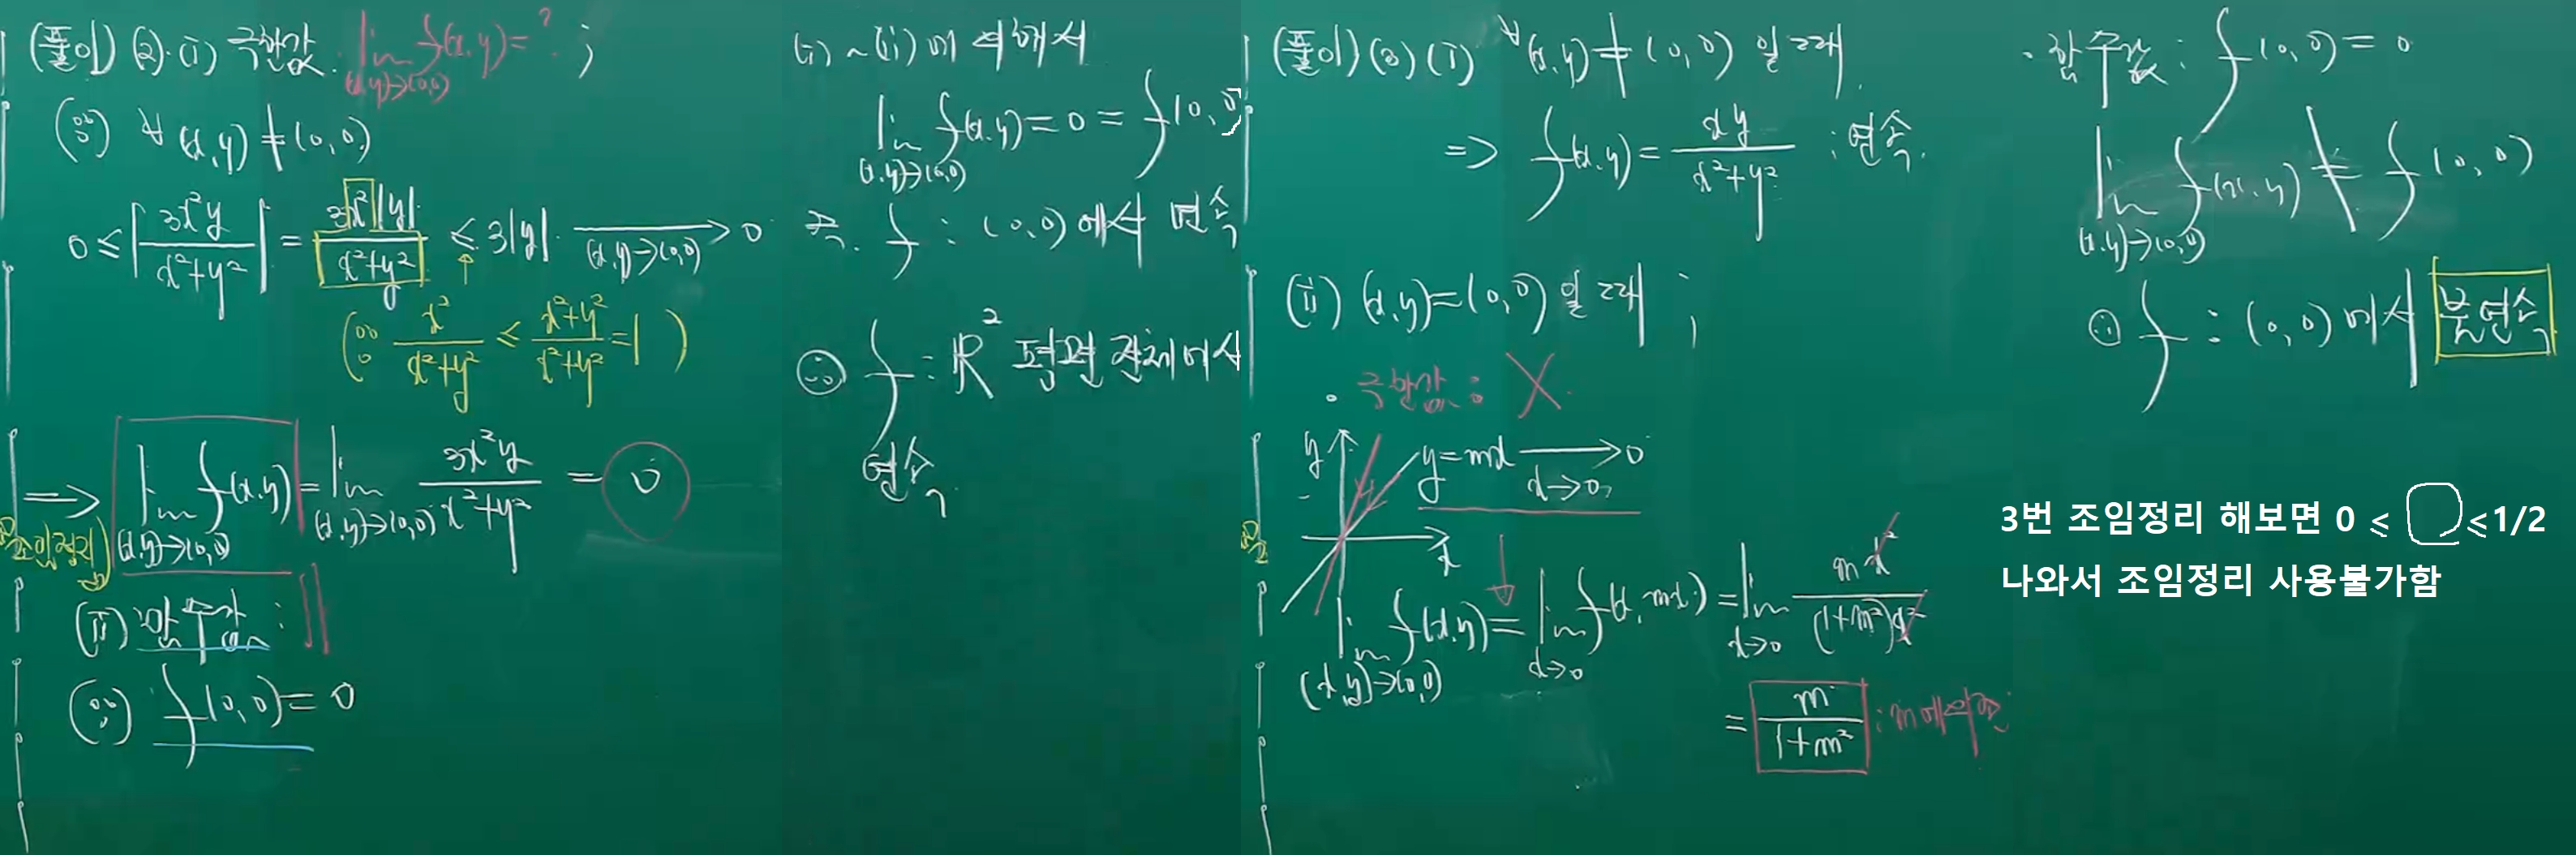 (풀이) (2)·(i) 극한값. lim f(x,y)=? ;
(x,y)→(0,0)
(∵) ∀(x,y)≠(0,0)
0 ≤ |3x²y / x²+y²| = 3x²|y| / x²+y² ≤ 3|y|. → 0
(x,y)→(0,0)
(∵ x² / x²+y² ≤ x²+y² / x²+y² = 1)
⇒ lim f(x,y) = lim 3x²y / x²+y² = 0
(x,y)→(0,0) (x,y)→(0,0)
조임정리)
(ii) 함수값 :
(∵) f(0,0) = 0
(i) ~ (ii) 에 의해서
lim f(x,y) = 0 = f(0,0)
(x,y)→(0,0)
즉. f : (0,0) 에서 연속
∴ f : ℝ² 평면 전체에서
연속
(풀이) (3) (i) ∀(x,y)≠(0,0) 일 때
⇒ f(x,y) = xy / x²+y² : 연속.
(ii) (x,y)=(0,0) 일 때 ;
· 극한값 : X
y y=mx → 0
x→0,
x
lim f(x,y) = lim f(x,mx) = lim mx² / (1+m²)x²
(x,y)→(0,0) x→0 x→0
= m / 1+m² : m에 의존
· 함수값 : f(0,0) = 0
lim f(x,y) ≠ f(0,0)
(x,y)→(0,0)
∴ f : (0,0) 에서 불연속
3번 조임정리 해보면 0 ≤ ≤1/2
나와서 조임정리 사용불가함